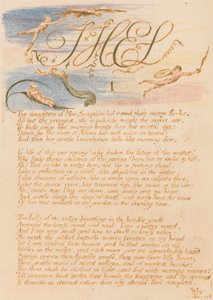 THEL
I
The daughters of Mne Seraphim led round their sunny flocks,
All but the youngest, she in paleness sought the secret air.
To fade away like morning beauty from her mortal day:
Down by the river of Adona her soft voice is heard:
And thus her gentle lamentation falls like morning dew.
O life of this our spring! why fades the lotus of the water?
Why fade these children of the spring? born but to smile & fall.
Ah! Thel is like a watry bow, and like a parting cloud.
Like a reflection in a glass, like shadows in the water.
Like dreams of infants, like a smile upon an infants face,
Like the doves voice, like transient day, like music in the air;
Ah! gentle may I lay me down, and gentle rest my head.
And gentle sleep the sleep of death, and gentle hear the voice
Of him that walketh in the garden in the evening time.
The Lilly of the valley breathing in the humble grass
Answer'd the lovely maid and said; I am a watry weed,
And I am very small, and love to dwell in lowly vales;
So weak, the gilded butterfly scarce perches on my head
Yet I am visited from heaven and he that smiles on all.
Walks in the valley. and each morn over me spreads his hand
Saying, rejoice thou humble grass, thou new-born lilly flower,
Thou gentle maid of silent valleys. and of modest brooks;
For thou shalt be clothed in light, and fed with morning manna:
Till summers heat melts thee beside the fountains and the springs
To flourish in eternal vales: then why should Thel complain,